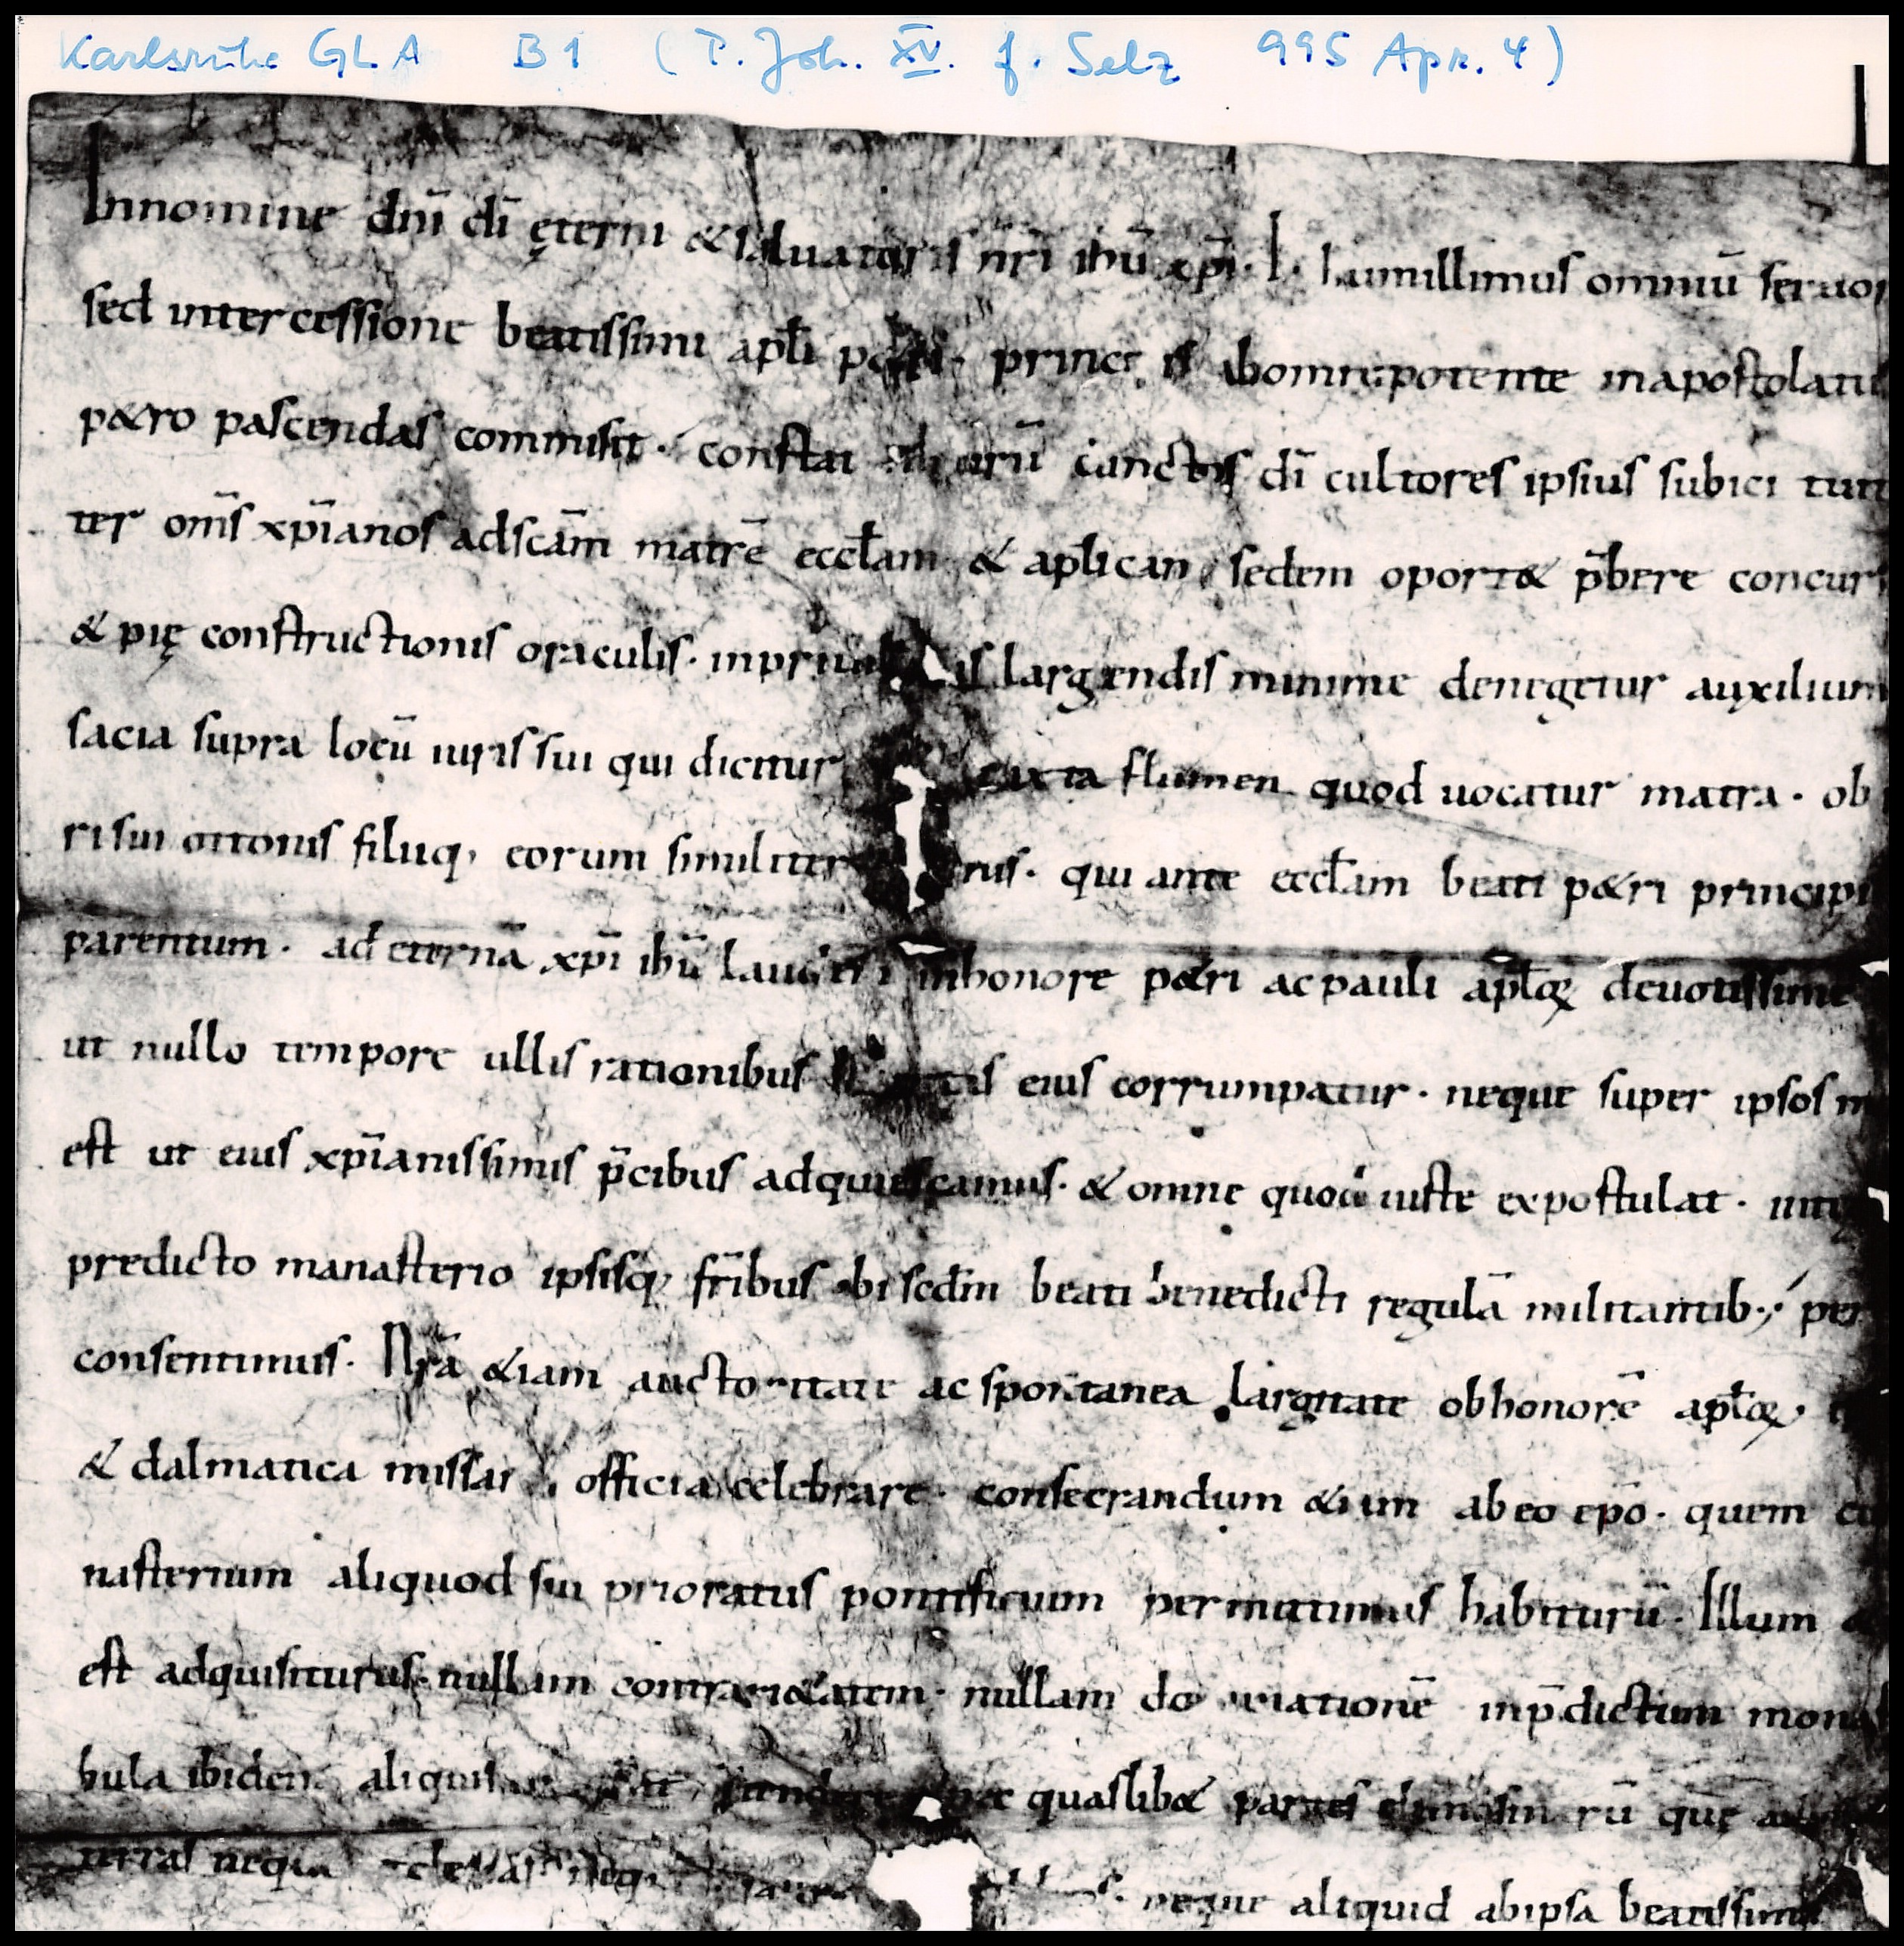 Karlsruhe GLA B 1 (P. Joh. XV. f. Selz 995 Apr. 4)
Innomine dñi dī ęterni & saluatoris ñri ihū xp̄i. I. humillimus omniū seruor
sed intercessione beatissimi apłi p&ri. princi is abomnipotente inapostolatu
p&ro pascendas commisit. constat cunctos dī cultores ipsius subici tuit
ter om̄s xp̄ianos adscām matrē eccłam & aplicam sedem oport& p̄bere concur
& pię constructionis oraculis. inpriuil is largiendis minime denegetur auxilium
sacia supra locū iuris sui qui dicitur iuxta flumen quod uocatur matra. ob
ri sui ottonis filiiq, eorum similiter rus. qui ante eccłam beati p&ri principi
parentum. ad eternā xp̄i ihū laudem inhonore p&ri ac pauli apłoꝝ deuotissime
ut nullo tempore ullis rationibus eius corrumpatur. neque super ipsos m
est ut eius xp̄ianissimis p̄cibus adquiescamus. & omne quod iuste expostulat.
predicto manasterio ipsisq, fr̄ibus ibi scdm̄ beati benedicti regulā militantib; per
consentimus. Nr̄a &iam auctoritate ac spontanea largitate ob honorē apłoꝝ
& dalmatica missarū officia celebrare. consecrandum &iam ab eo ep̄o. quem cu
nasterium aliquod sui prioratus pontificium permittimus habiturū. Illum
est adquisiturus. nullam contrari&atem. nullam do nationē inp̄dictum mona
bula ibidem quaslib& partes rū quę
terras neque neque aliquid abipsa beatissima